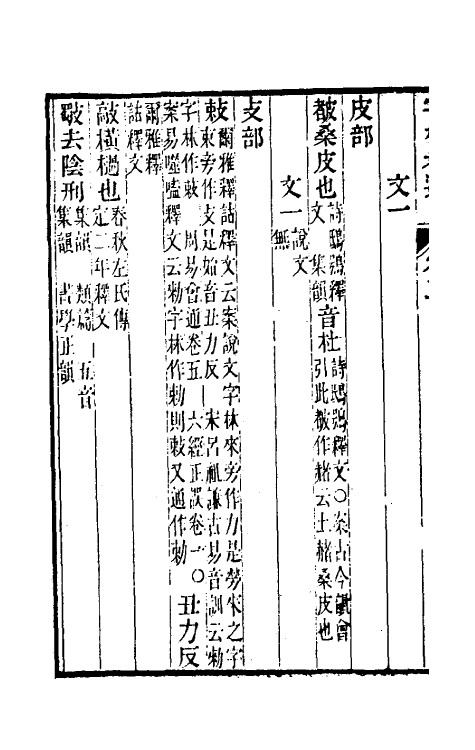 文一
皮部
桑皮也詩鴟鴞釋
文 集韻音杜詩鴟鴞釋文○案古今韻會
引此作赭云土赭桑皮也
文一說文
無
攴部
敕爾雅釋詁釋文云案說文字林來旁作力是勞來之字
東旁作攴是始音丑力反 宋呂祖謙古易音訓云勑
字林作敕 周易會通卷五 六經正誤卷一 ○丑力反
案易噬嗑釋文云勑字林作勅則敕又通作勑
爾雅釋
詁釋文
敲橫撾也春秋左氏傳
定二年釋文
集韻 類篇 五音
斀去陰刑集韻 書學正韻